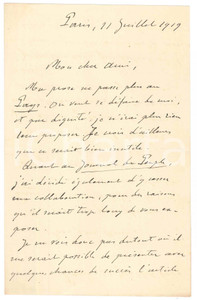 Paris, 21 Juillet 1919
Mon cher Ami,
Ma prose ne passe plus au
Pays. On veut se défaire de moi,
et par dignité je n'ai plus rien
voulu proposer. Je crois d'ailleurs
que ce serait bien inutile
Quant au Journal du Peuple
j'ai décidé également d'y cesser
ma collaboration, pour des raisons
qu'il serait trop long de vous ex-
poser.
Je ne vois donc pas du tout où il
me serait possible de présenter avec
quelque chance de succès l'article